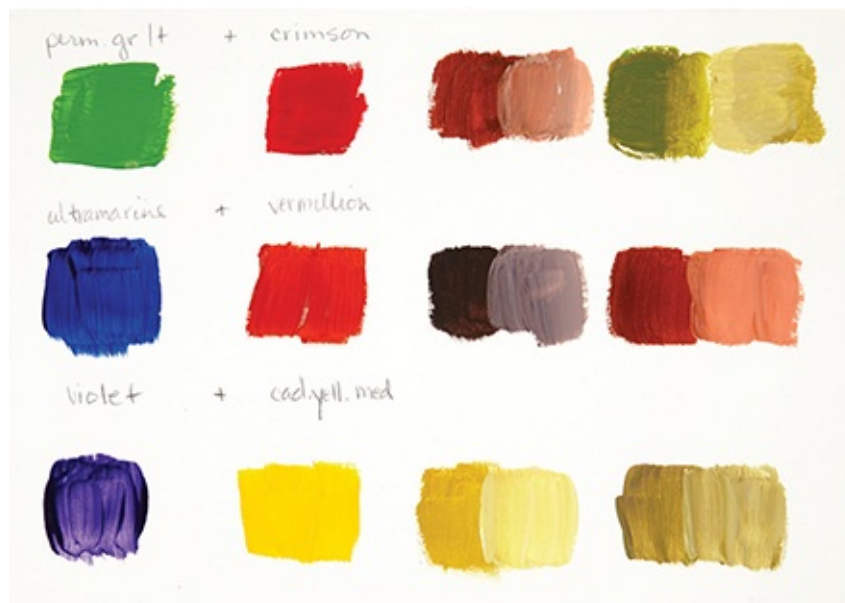 perm. gr lt + crimson
ultramarine + vermillion
violet + cad.yell.med